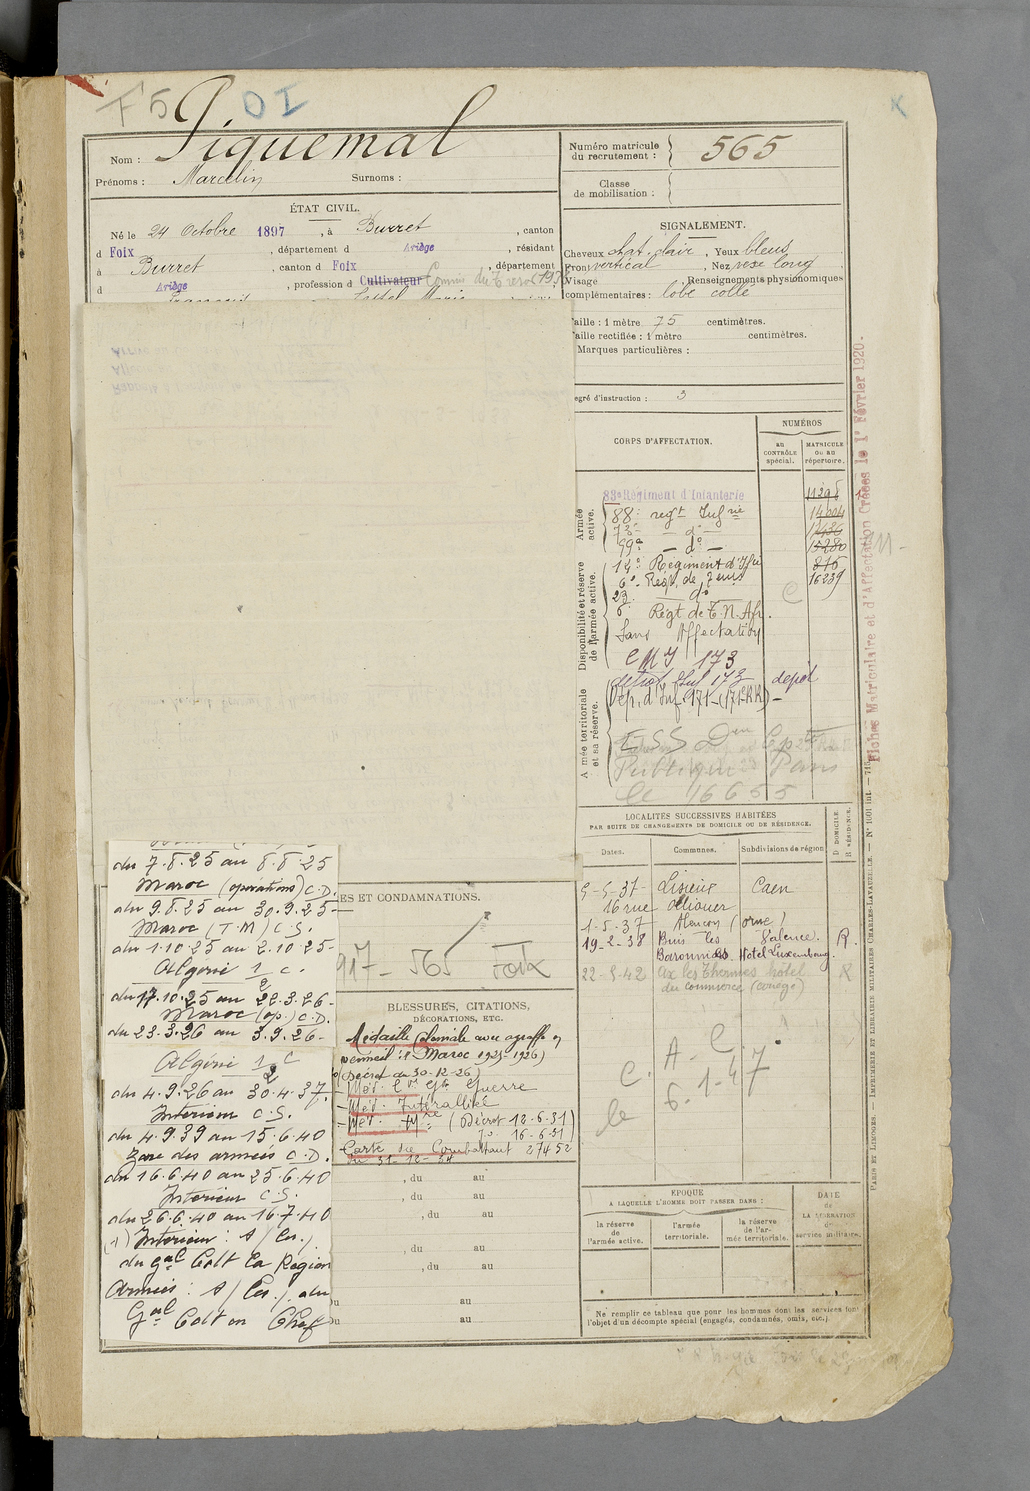 F5 DI
Piquemal
Nom :
Prénoms : Marcelin Surnoms :
Numéro matricule
du recrutement : 565
Classe
de mobilisation :
ÉTAT CIVIL.
Né le 24 Octobre 1897, à Burret, canton
d Foix, département d Ariège, résidant
à Burret, canton d Foix, département
d Ariège, profession d Cultivateur Commis du Trésor
SIGNALEMENT.
Cheveux chat. clair, Yeux bleus
Front vertical, Nez vexe long
Visage , Renseignements physionomiques
complémentaires : lobe collé
Taille : 1 mètre 75 centimètres.
Taille rectifiée : 1 mètre centimètres.
Marques particulières :
egré d'instruction : 3
CORPS D'AFFECTATION.
NUMÉROS
au
CONTRÔLE
spécial.
MATRICULE
ou au
répertoire.
Armée
active.
83e Régiment d'Infanterie
88e regt Infrie 14004
73e - do -
99e - do - 15280
Disponibilité et réserve
de l'armée active.
14e Régiment d'Ifie 815
6e Régt de Zouaves 16239
23 do
6 Régt de T.N.Afr.
Sans Affectation
CMI 173
depôt
A mée territoriale
et sa réserve.
Dep. d'Inf. 171
Publique Paris
le 16655
Fiches Matriculaire et d'Affectation Créées le 1er Février 1920.
LOCALITÉS SUCCESSIVES HABITÉES
PAR SUITE DE CHANGEMENTS DE DOMICILE OU DE RÉSIDENCE.
Dates. Communes. Subdivisions de région
D DOMICILE.
R RÉSIDENCE.
5-5-37- Lisieux Caen
16 rue Oliouer
1-5-37 Alençon (orne)
19-2-38 Buis les Valence. R.
Baronnies. Hotel Luxembourg.
22-5-42 Ax les Thermes hôtel R
du Commerce (Congé)
C. A. C.
le 6.1.47
du 7.8.25 au 8.8.25
Maroc (opérations) C.D.
du 9.8.25 au 30.9.25-
Maroc (T.M) C.S.
du 1.10.25 au 2.10.25-
Algérie 1/2 C.
du 17.10.25 au 22.3.26-
Maroc (op.) C.D.
du 23.3.26 au 3.9.26-
Algérie 1/2 C
du 4.9.26 au 30.4.37.
Intérieur C.S.
du 4.9.39 au 15.6.40
Zone des armées C.D.
du 16.6.40 au 25.6.40
Intérieur C.S.
du 26.6.40 au 16.7.40
(1) Intérieur : s/ les./
du Gal Cdt la Région
Armées : s/ les./. du
Gal Cdt en Chef
ES ET CONDAMNATIONS.
917- 565 Foix
BLESSURES, CITATIONS,
DÉCORATIONS, ETC.
Médaille Coloniale avec agraffe en
vermeil : "Maroc 1925-1926)
(Décret du 30-12-26)
- Méd. Cve Gde Guerre
- Méd. Interalliée
- Méd. Mre (Décret 12.6.31)
Jo 16-6-31
Carte du Combattant 27452
du 31-12-34
, du au
, du au
, du au
, du au
, du au
Du au
Du au
ÉPOQUE
A LAQUELLE L'HOMME DOIT PASSER DANS :
la réserve
de
l'armée active.
l'armée
territoriale.
la réserve
de l'ar-
mée territoriale.
DATE
de
LA LIBÉRATION
du
service militaire.
Ne remplir ce tableau que pour les hommes dont les services font
l'objet d'un décompte spécial (engagés, condamnés, omis, etc.)
PARIS ET LIMOGES. — IMPRIMERIE ET LIBRAIRIE MILITAIRES CHARLES-LAVAUZELLE. — N° 1001 int. —